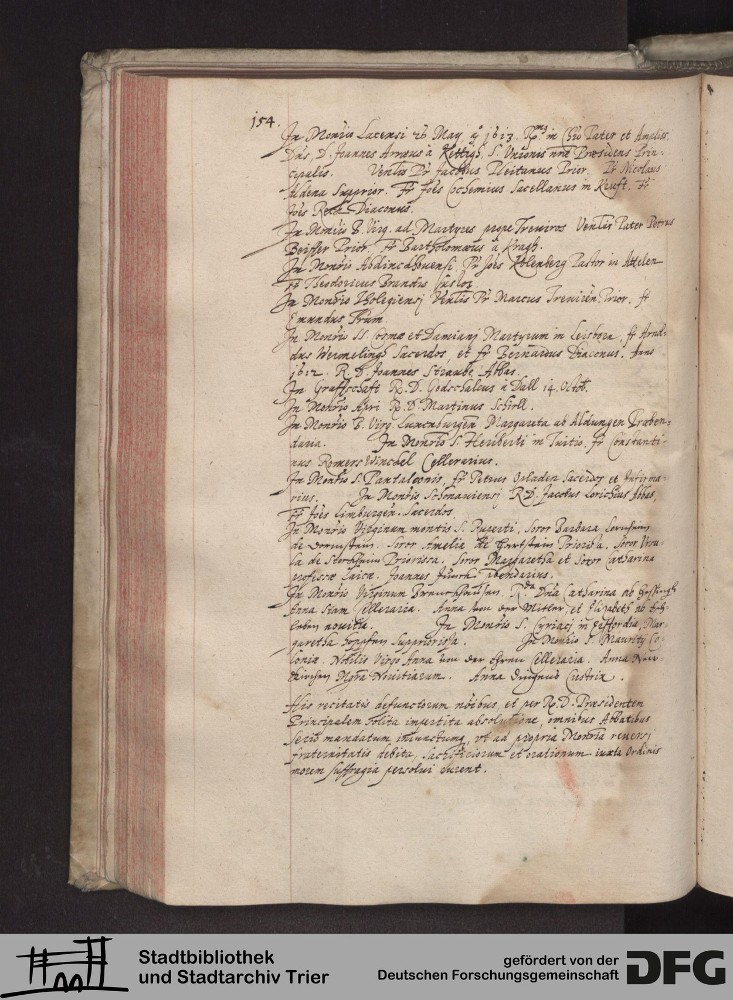 154.
In Mon̄rio Lacensi 26 May aº 1613 Rmus in Chr̄o Pater et Ampliss.
Dn̄s, D. Joannes Arnæus à Kettigh, S. Unionis nr̄æ Præsidens Prin-
cipalis. Ven̄lis Pr̄ Jacobus Pleitanus Prior. Pr̄ Nicolaus
Aldena Supprior. Fr̄ Joēs Cochemius Sacellanus in Kruft. Fr̄
Joēs Diaconus.
In Mon̄rio B. Virg. ad Martyres prope Treviros Ven̄lis Pater Petrus
Beiffer Prior. Fr̄ Bartholomæus à Kragh.
In Mon̄rio Abdincdhouensi Pr̄ Joēs Kolenberg Pastor in Attelen
Fr̄ Theodoricus Brandis Custos.
In Mon̄rio Tholegiensj Ven̄lis Pr̄ Marcus Treviren. Prior. Fr̄
Emundus Thum.
In Mon̄rio SS. Cosmæ et Damianj Martyrum in Leisborn. Fr̄ Arnol-
dus Wermelingh Sacerdos, et Fr̄ Bernardus Diaconus. Anno
1612. R. D. Joannes Straube Abbas.
In Graffschaft R. D. Godschalcus à Dall 14. Octob.
In Mon̄rio Apri R. D. Martinus Scholl.
In Mon̄rio B. Virg. Luxenburgen̄ Margareta ab Aldungen Præben-
daria. In Mon̄rio S. Heriberti in Tuitio. Fr̄ Constanti-
nus Romerswinckel Cellerarius.
In Mon̄rio S. Pantaleonis, Fr̄ Petrus Orladen Sacerdos et Infirma-
rius. In Mon̄rio Schonauiensj R. D. Jacobus Lorichius Abbas,
Fr̄ Joēs Limburgen̄. Sacerdos.
In Mon̄rio Virginum montis S. Ruperti, Soror Barbara
de Soror Amelia de Hartstein Priorissa. Soror Ursu-
la de Priorissa. Soror Margaretha et Soror Catharina
professæ laicæ. Joannes
In Mon̄rio Virginum Rda Dn̄a Catharina ab
Anna Celleraria. Anna von der et Elizabeth ab
nouitia. In Mon̄rio S. Cyriacj in Mar-
garetha Suppriorissa. In Mon̄rio S. Mauritij Co-
loniæ. Nobilis Virgo Anna von der Celleraria. Anna
Mgr̄a Nouitiarum. Anna Custrix.
His recitatis defunctorum nōibus, et per R. D. Præsidentem
Principalem solita impertita absolutione, omnibus Abbatibus
seriò mandatum iniunctumq, vt ad propria Mon̄ria reuersj
fraternitatis debita, sacrificiorum et orationum iuxta Ordinis
morem suffragia persolui curent.
Stadtbibliothek
und Stadtarchiv Trier
gefördert von der
Deutschen Forschungsgemeinschaft
DFG